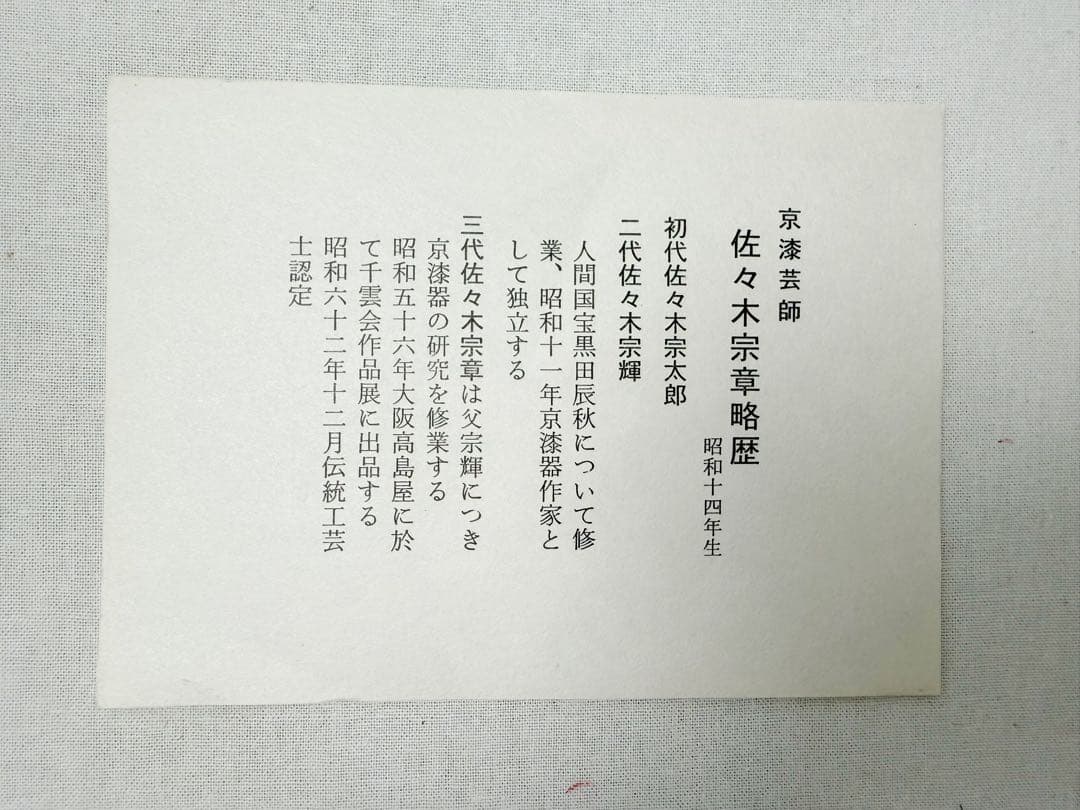 京漆芸師
佐々木宗章略歴
昭和十四年生
初代佐々木宗太郎
二代佐々木宗輝
人間国宝黒田辰秋について修
業、昭和十一年京漆器作家と
して独立する
三代佐々木宗章は父宗輝につき
京漆器の研究を修業する
昭和五十六年大阪高島屋に於
て千雲会作品展に出品する
昭和六十二年十二月伝統工芸
士認定